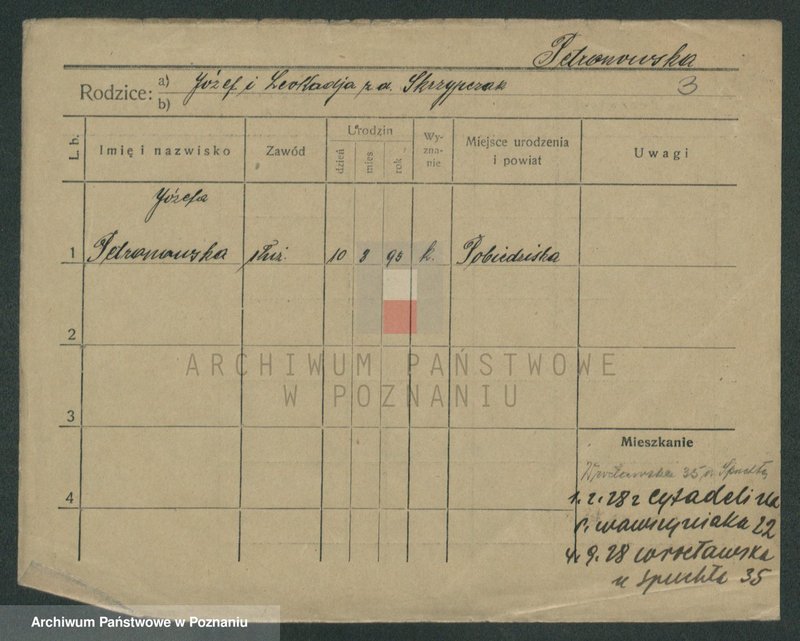 Petronowska
Rodzice: a) Józef i Leokadja z d. Skrzypczak 3
b)
L. b.
Imię i nazwisko
Zawód
Urodzin
dzień
mies
rok
Wy-
zna-
nie
Miejsce urodzenia
i powiat
Uwagi
Józefa
1 Petronowska 10 3 95 k. Pobiedziska
2
ARCHIWUM PAŃSTWOWE
W POZNANIU
3
Mieszkanie
Wrocławska 35 u Spuchły
4
1. 2. 28 z Cytadeli na
P. Wawrzyniaka 22
4. 9. 28 Wrocławska
u Spuchła 35
Archiwum Państwowe w Poznaniu